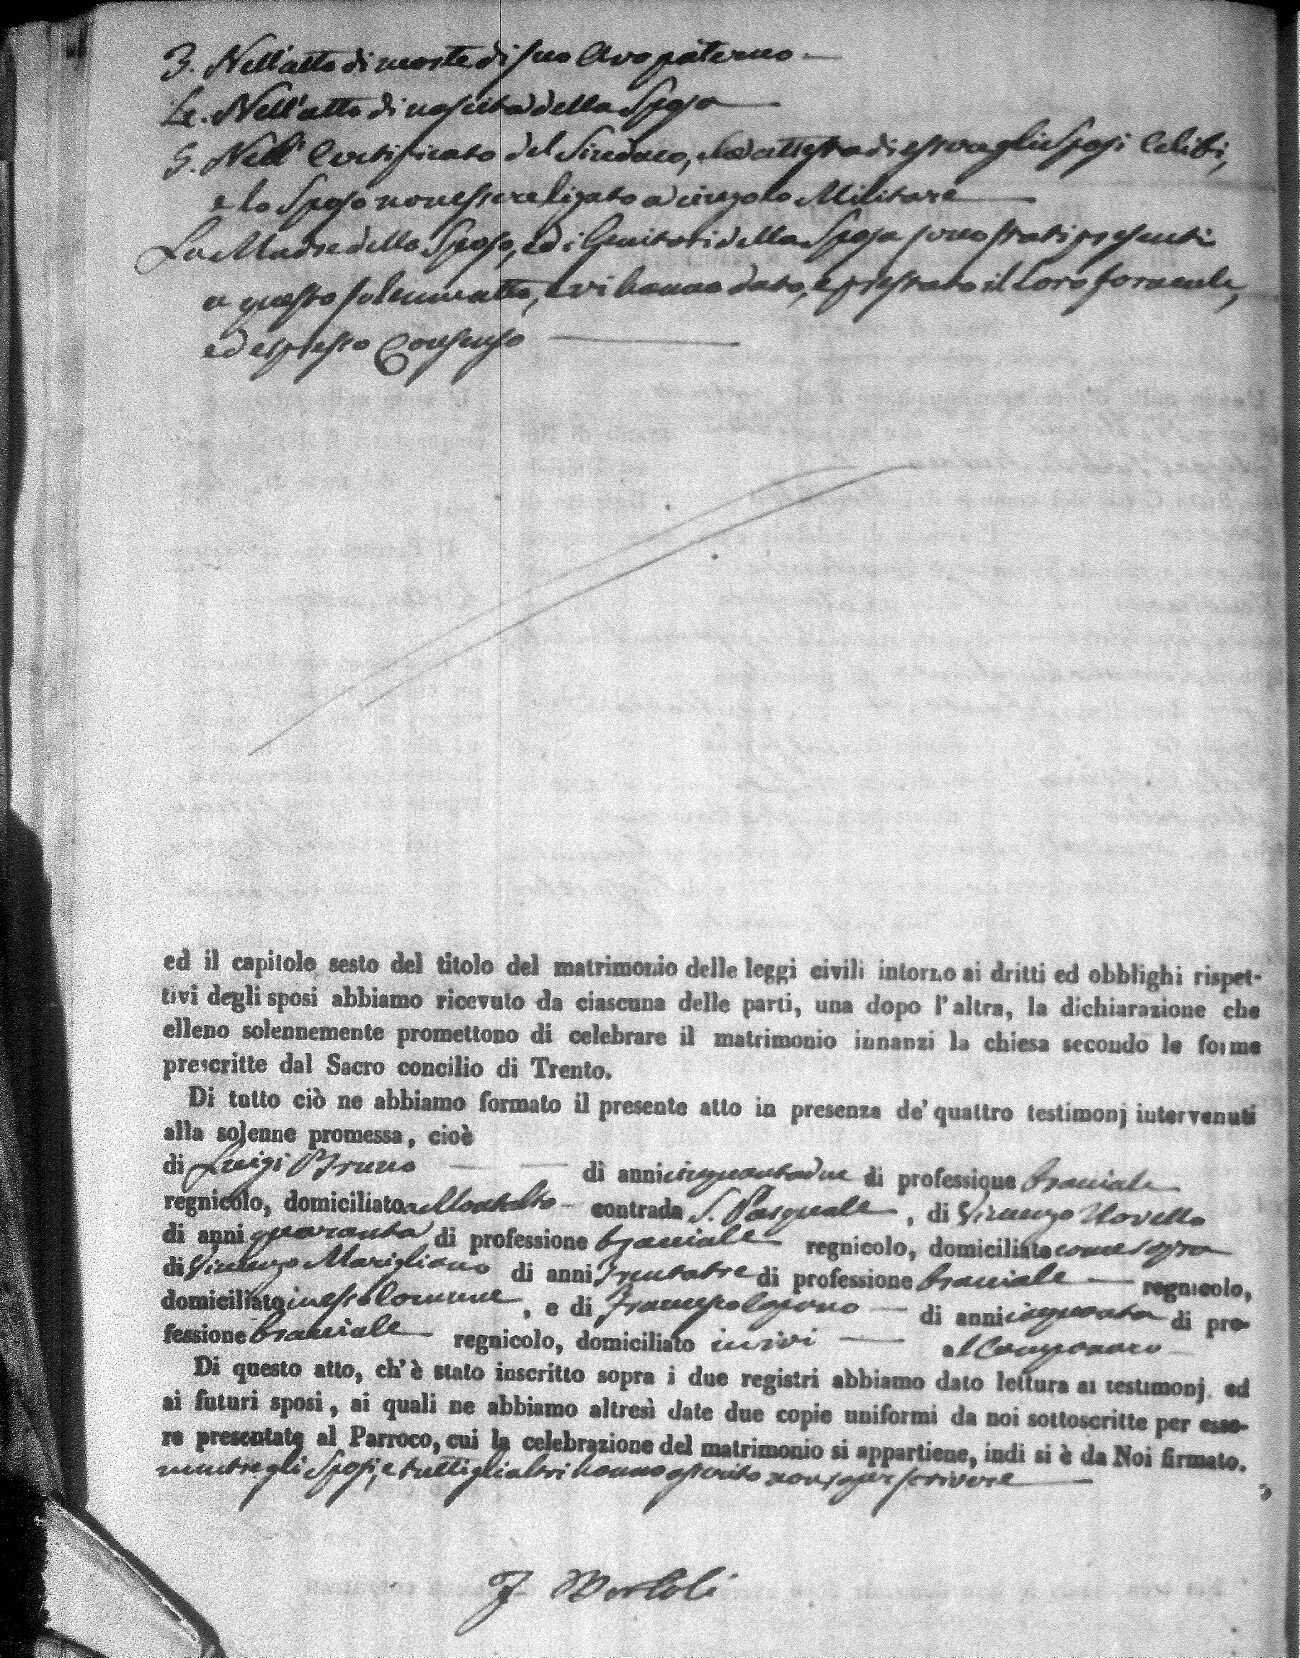 3. Nell'atto di morte di suo Avo paterno
4. Nell'atto di nascita della Sposa
5. Nell Certificato del Sindaco, che attesta di essere gli Sposi Celibi,
e lo Sposo non essere ligato a vincolo Militare
La Madre dello Sposo, ed i Genitori della Sposa sono stati presenti
a questo solenne atto, e vi hanno dato, e prestato il Loro formale,
ed espresso Consenso
ed il capitolo sesto del titolo del matrimonio delle leggi civili intorno ai dritti ed obblighi rispet-
tivi degli sposi abbiamo ricevuto da ciascuna delle parti, una dopo l'altra, la dichiarazione che
elleno solennemente promettono di celebrare il matrimonio innanzi la chiesa secondo le forme
prescritte dal Sacro concilio di Trento.
Di tutto ciò ne abbiamo formato il presente atto in presenza de' quattro testimonj intervenuti
alla solenne promessa, cioè
di Luigi Bruno di anni cinquantadue di professione bracciale
regnicolo, domiciliato a Montalto contrada S. Pasquale, di Vincenzo Novello
di anni quaranta di professione bracciale regnicolo, domiciliato come sopra
di Vincenzo Marigliano di anni trentatre di professione bracciale regnicolo,
domiciliato in esso Comune, e di Francesco di anni cinquanta di pro-
fessione bracciale regnicolo, domiciliato in ivi al
Di questo atto, ch'è stato inscritto sopra i due registri abbiamo dato lettura ai testimonj, ed
ai futuri sposi, ai quali ne abbiamo altresì date due copie uniformi da noi sottoscritte per esse-
re presentate al Parroco, cui la celebrazione del matrimonio si appartiene, indi si è da Noi firmato.
mentre gli Sposi, e tutti gli altri hanno asserito non saper scrivere